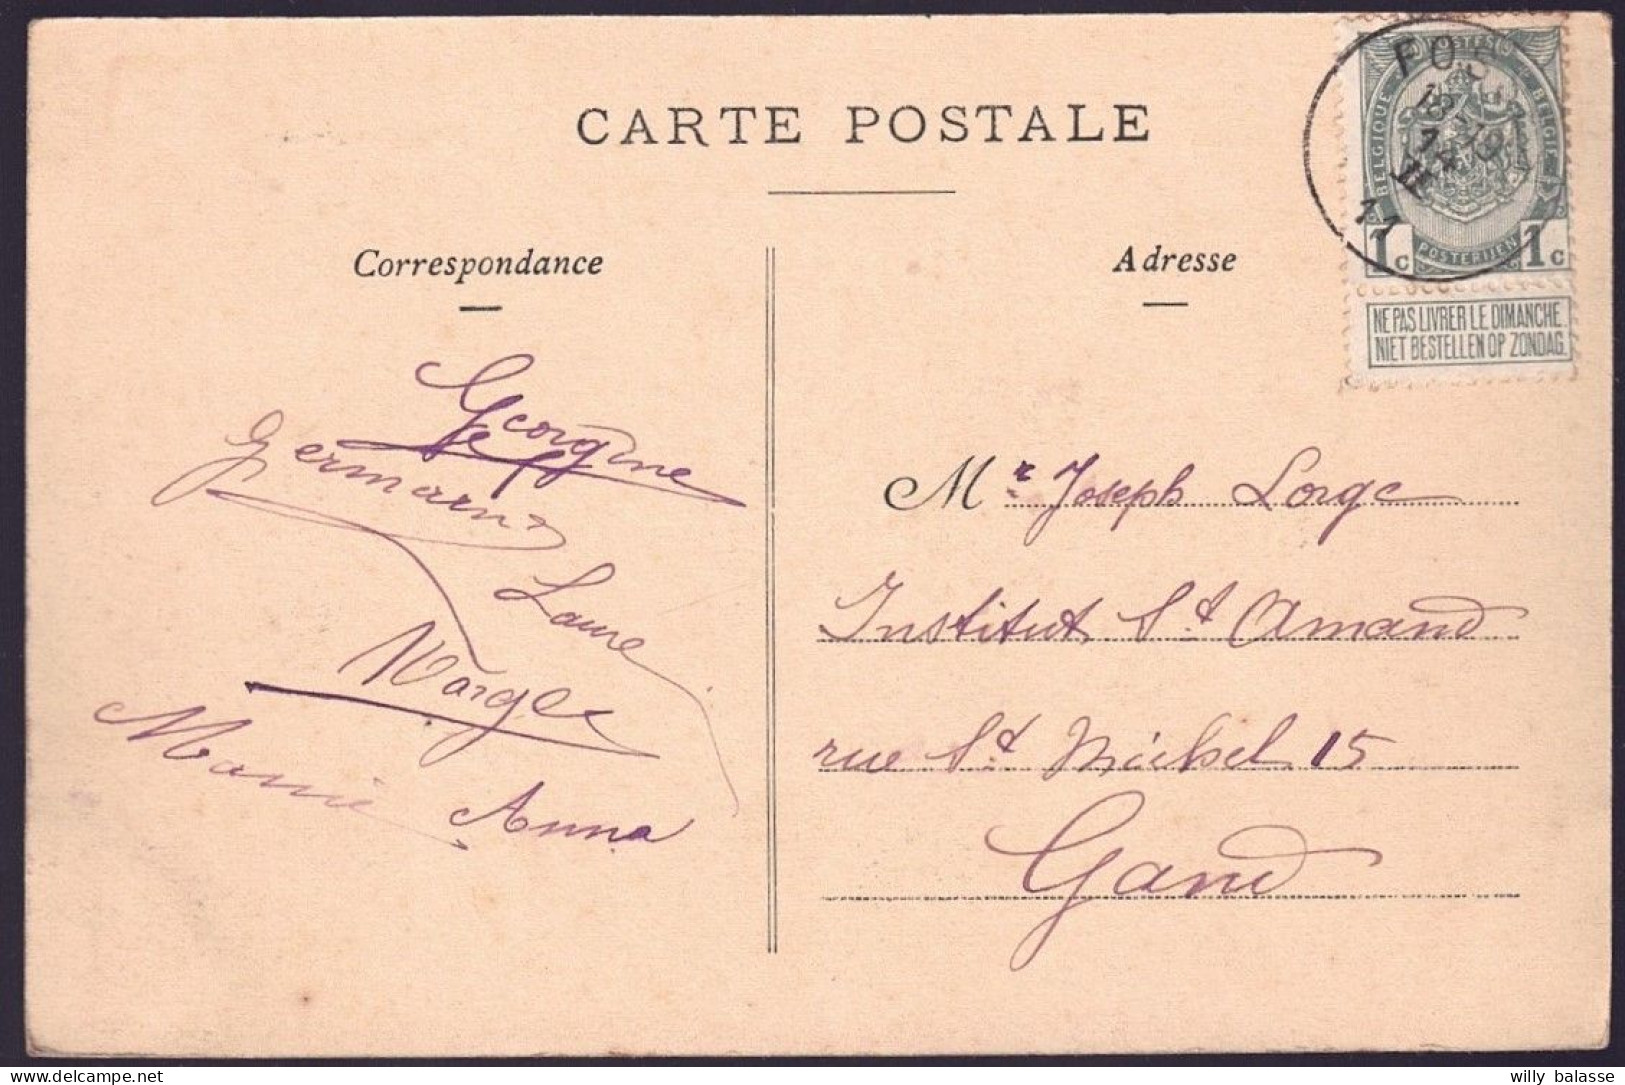 CARTE POSTALE
Correspondance
Georgine
Germaine
Laure
Marie
Anna
Adresse
Mr Joseph Lorge
Institut St Amand
rue St Michel 15
Gand
FOS
18-19
II
11
POSTES
BELGIQUE
BELGIË
POSTERIJEN
1c
1c
NE PAS LIVRER LE DIMANCHE
NIET BESTELLEN OP ZONDAG
willy balasse